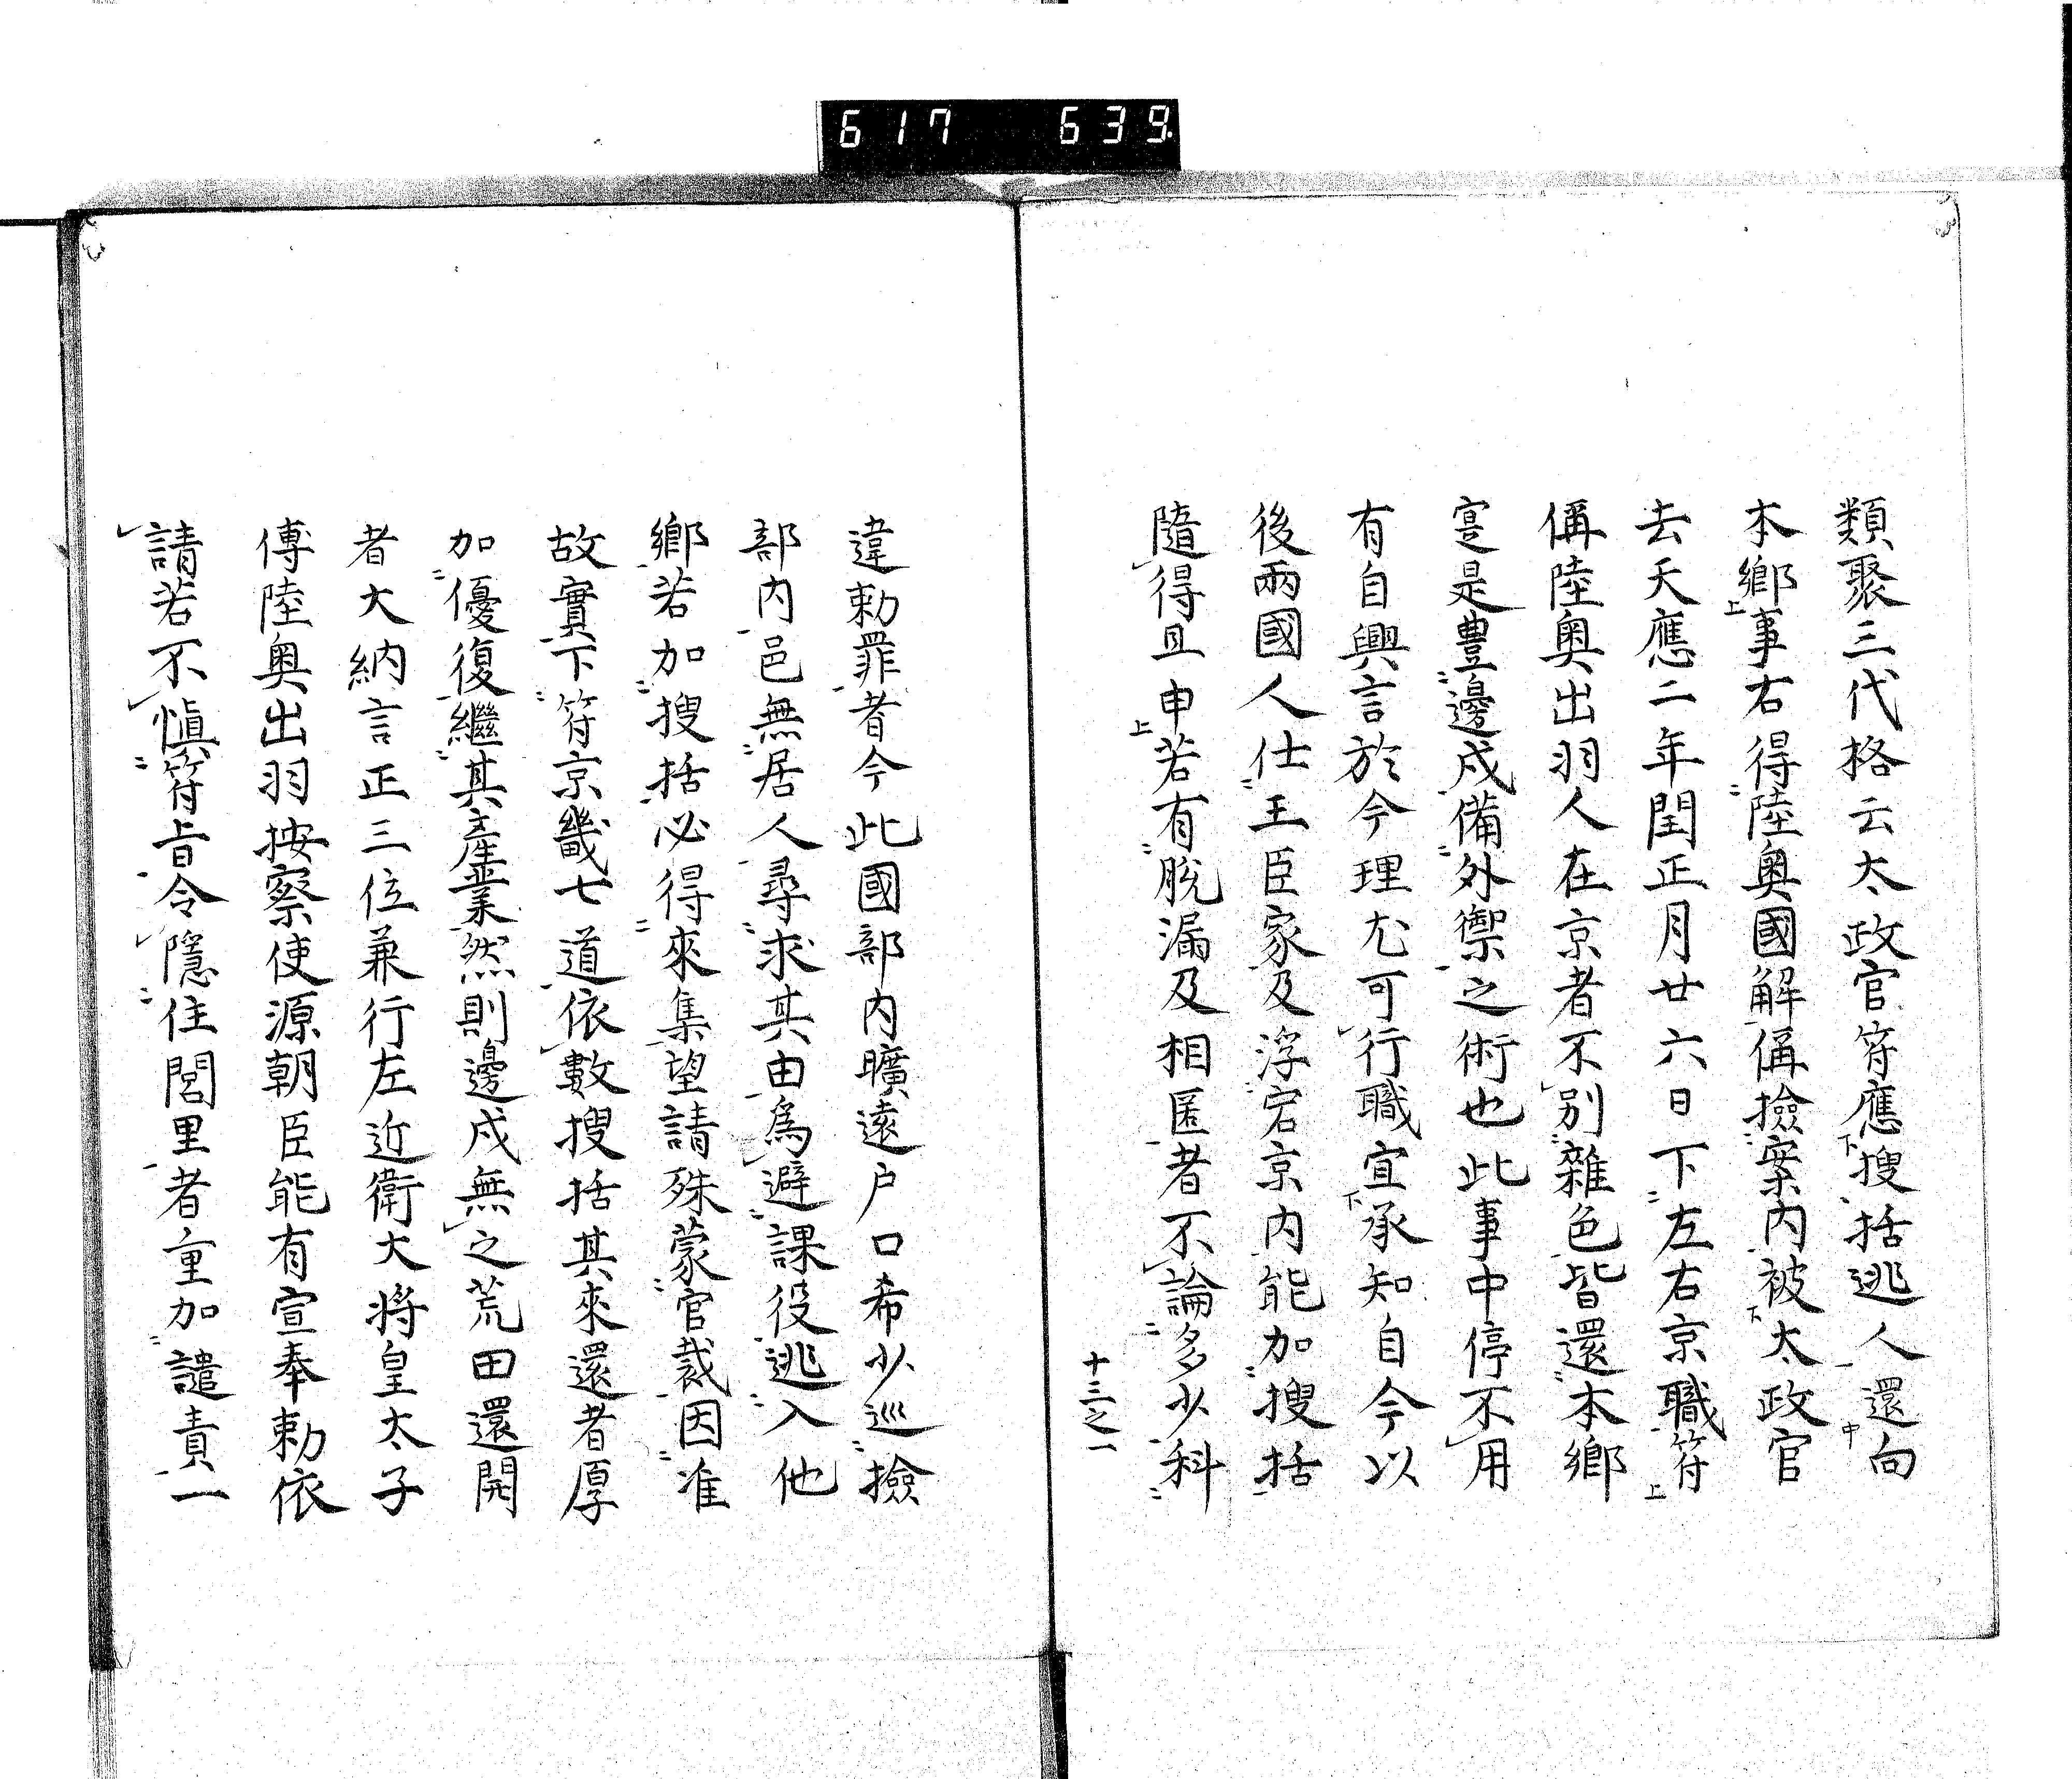 617 639
類聚三代格云太政官符應搜括逃人還向
本鄉事右得陸奧國解偁撿案内被太政官
去天應二年閏正月廿六日下左右京職符
偁陸奧出羽人在京者不別雜色皆還本鄉
寔是豊邊戍備外禦之術也此事中停不用
有自興言於今理尤可行職宜承知自今以
後兩國人仕王臣家及浮宕京内能加搜括
隨得且申若有脫漏及相匿者不論多少科
十三之一
違勅罪者今此國部内曠遠户口希少巡撿
部内邑無居人尋求其由爲避課役逃入他
鄉若加搜括必得來集望請殊蒙官裁因准
故實下符京畿七道依數搜括其來還者厚
加優復繼其產業然則邊戍無之荒田還開
者大納言正三位兼行左近衛大將皇太子
傅陸奥出羽按察使源朝臣能有宣奉勅依
請若不愼符旨令隱住閭里者重加譴責一